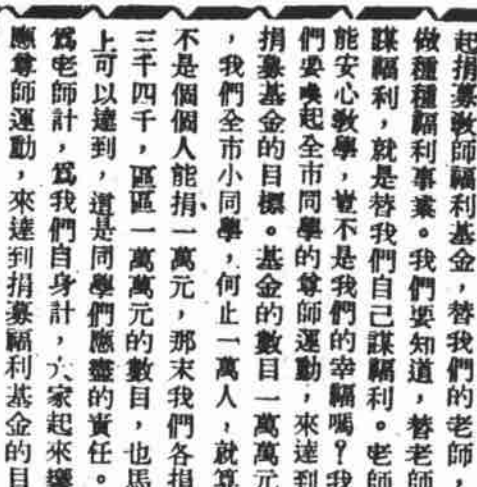 起捐募教師福利基金，替我們的老師，
做種種福利事業。我們要知道，替老師
謀福利，就是替我們自己謀福利。老師
能安心教學，豈不是我們的幸福嗎？我
們要喚起全市同學的尊師運動，來達到
捐募基金的目標。基金的數目一萬萬元
，我們全市小同學，何止一萬人，就算
不是個個人能捐一萬元，那末我們各捐
三千四千，區區一萬萬元的數目，也馬
上可以達到，這是同學們應盡的責任。
爲老師計，爲我們自身計，大家起來響
應尊師運動，來達到捐募福利基金的目